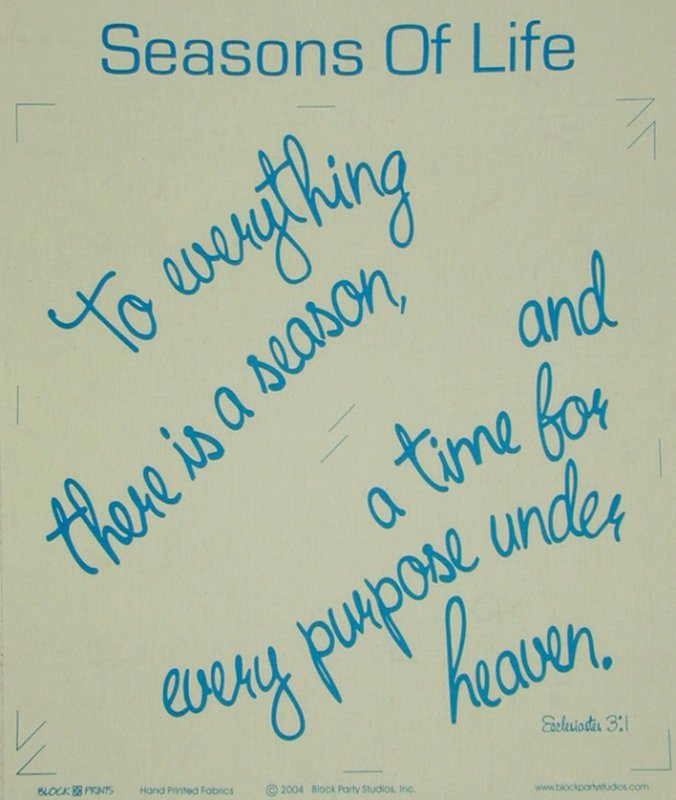 Seasons Of Life
To everything
there is a season,
and
a time for
every purpose under
heaven.
Ecclesiastes 3:1
BLOCK PRINTS Hand Printed Fabrics © 2004 Block Party Studios, Inc. www.blockpartystudios.com